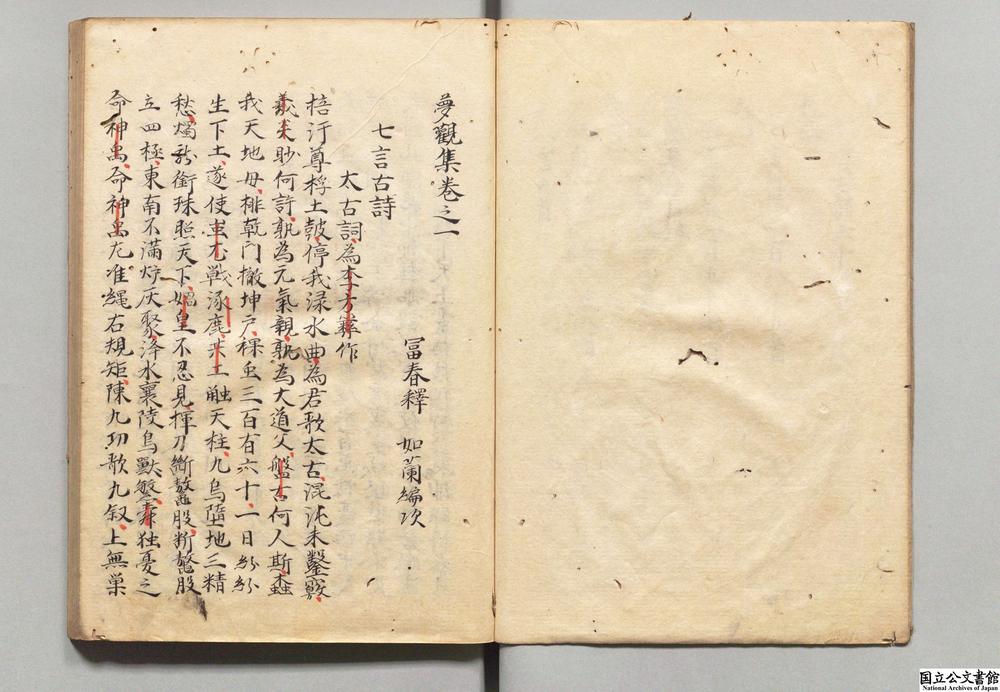 夢觀集卷之一
冨春釋 如蘭編次
七言古詩
太古詞為李方彝作
梧汙尊桴土鼓停我渌水曲為君歌太古混沌未鑿竅
羲炎眇何許孰為元氣親孰為大道父盤古何人斯盍
我天地母排乾門撤坤戶裸虫三百有六十一日紛紛
生下土遂使蚩尤戰涿鹿共工觸天柱九烏墮地三精
愁燭龍銜珠照天下媧皇不忍見揮刀斷鰲股斷鰲股
立四極東南不滿爐灰聚洚水襄陵鳥獸繁堯独憂之
命神禹命神禹左准繩右規矩陳九功歌九叙上無巢
国立公文書館
National Archives of Japan